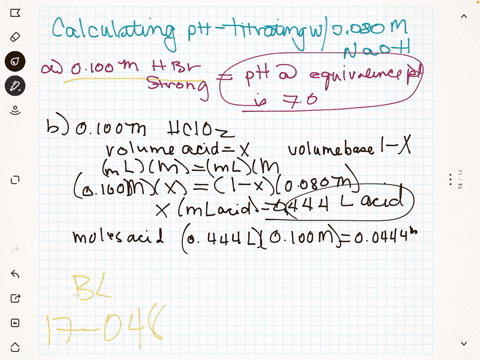 Calculating pH-titrating w/ 0.080 M
NaOH
a) 0.100 M HBr = pH @ equivalence pt
Strong is 7.0
b) 0.100 M HClO2
volume acid = x volume base 1-x
(mL)(M) = (mL)(M
(0.100M)(x) = (1-x)(0.080M)
X (mL acid) = 0.444 L acid
moles acid (0.444L)(0.100M) = 0.0444
BL
17-048
14 / 14